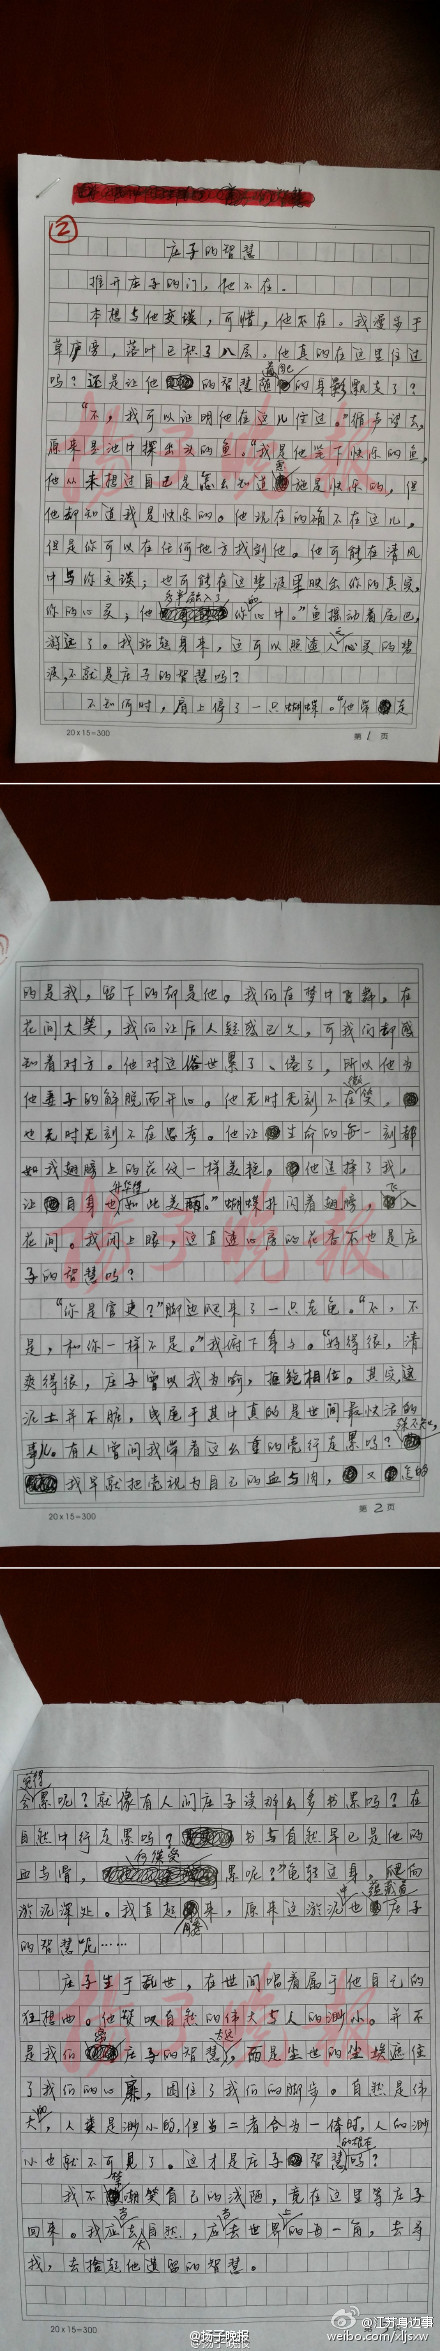 ②
庄子的智慧
推开庄子的门，他不在。
本想与他交谈，可惜，他不在。我漫步于
草庐旁，落叶已积了八层。他真的在这里住过
吗？还是让他的智慧随着自己的身影飘走了？
“不，我可以证明他在这儿住过。”循声望去，
原来是池中探出头的鱼。“我是他笔下快乐的鱼，
他从未想过自己是怎么知道鱼是快乐的，但
他却知道我是快乐的。他现在的确不在这儿，
但是你可以在任何地方找到他。他可能在清风
中与你交谈；也可能在这碧波里映出你的真实，
你的心灵；他早融入了你的心中。”鱼摆动着尾巴，
游远了。我站起身来，这可以照透人心灵的碧
波，不就是庄子的智慧吗？
不知何时，肩上停了一只蝴蝶。“他带走
20×15=300
第1页
的是我，留下的却是他。我们在梦中飞舞，在
花间大笑，我们让后人疑惑已久，可我们却感
知着对方。他对这俗世累了、倦了，所以他为
他妻子的解脱而开心。他无时无刻不在微笑，
也无时无刻不在思考。他让生命的每一刻都
如我翅膀上的花纹一样美轮。他选择了我，
让自身也升华得如此美丽。”蝴蝶扑闪着翅膀，飞入
花间。我闭上眼，这直透心房的花香不也是庄
子的智慧吗？
“你是官吏？”脚边爬来了一只老龟。“不，不
是，和你一样不是。”我俯下身子。“好得很，清
爽得很，庄子曾以我为喻，拒绝相位。其实，这
泥土并不脏，曳尾于其中真的是世间最快活的
事儿。有人曾问我带着这么重的壳行走累吗？殊不知，
我早就把壳视为自己的血与肉，又怎的
20×15=300
第2页
会觉得累呢？就像有人问庄子读那么多书累吗？在
自然中行走累吗？书与自然早已是他的
血与骨，何谈受累呢？”龟转过身，爬向
淤泥深处。我直起腰来，原来这淤泥中也蕴藏着庄子
的智慧呢……
庄子生于乱世，在世间唱着属于他自己的
狂想曲。他赞叹自然的伟大与人的渺小。并不
是我们离庄子的智慧太远，而是尘世的尘埃遮住
了我们的心扉，困住了我们的脚步。自然是伟
大的，人类是渺小的，但当二者合为一体时，人的渺
小也就不可见了。这才是庄子智慧的根本吗？
我不禁嘲笑自己的浅陋，竟在这里等庄子
回来。我应去大自然，应去世界上的每一角，去寻
找，去捡起他遗留的智慧。
20×15=300
扬子晚报
扬子晚报
扬子晚报
@扬子晚报
@江苏身边事
weibo.com/xljsxw